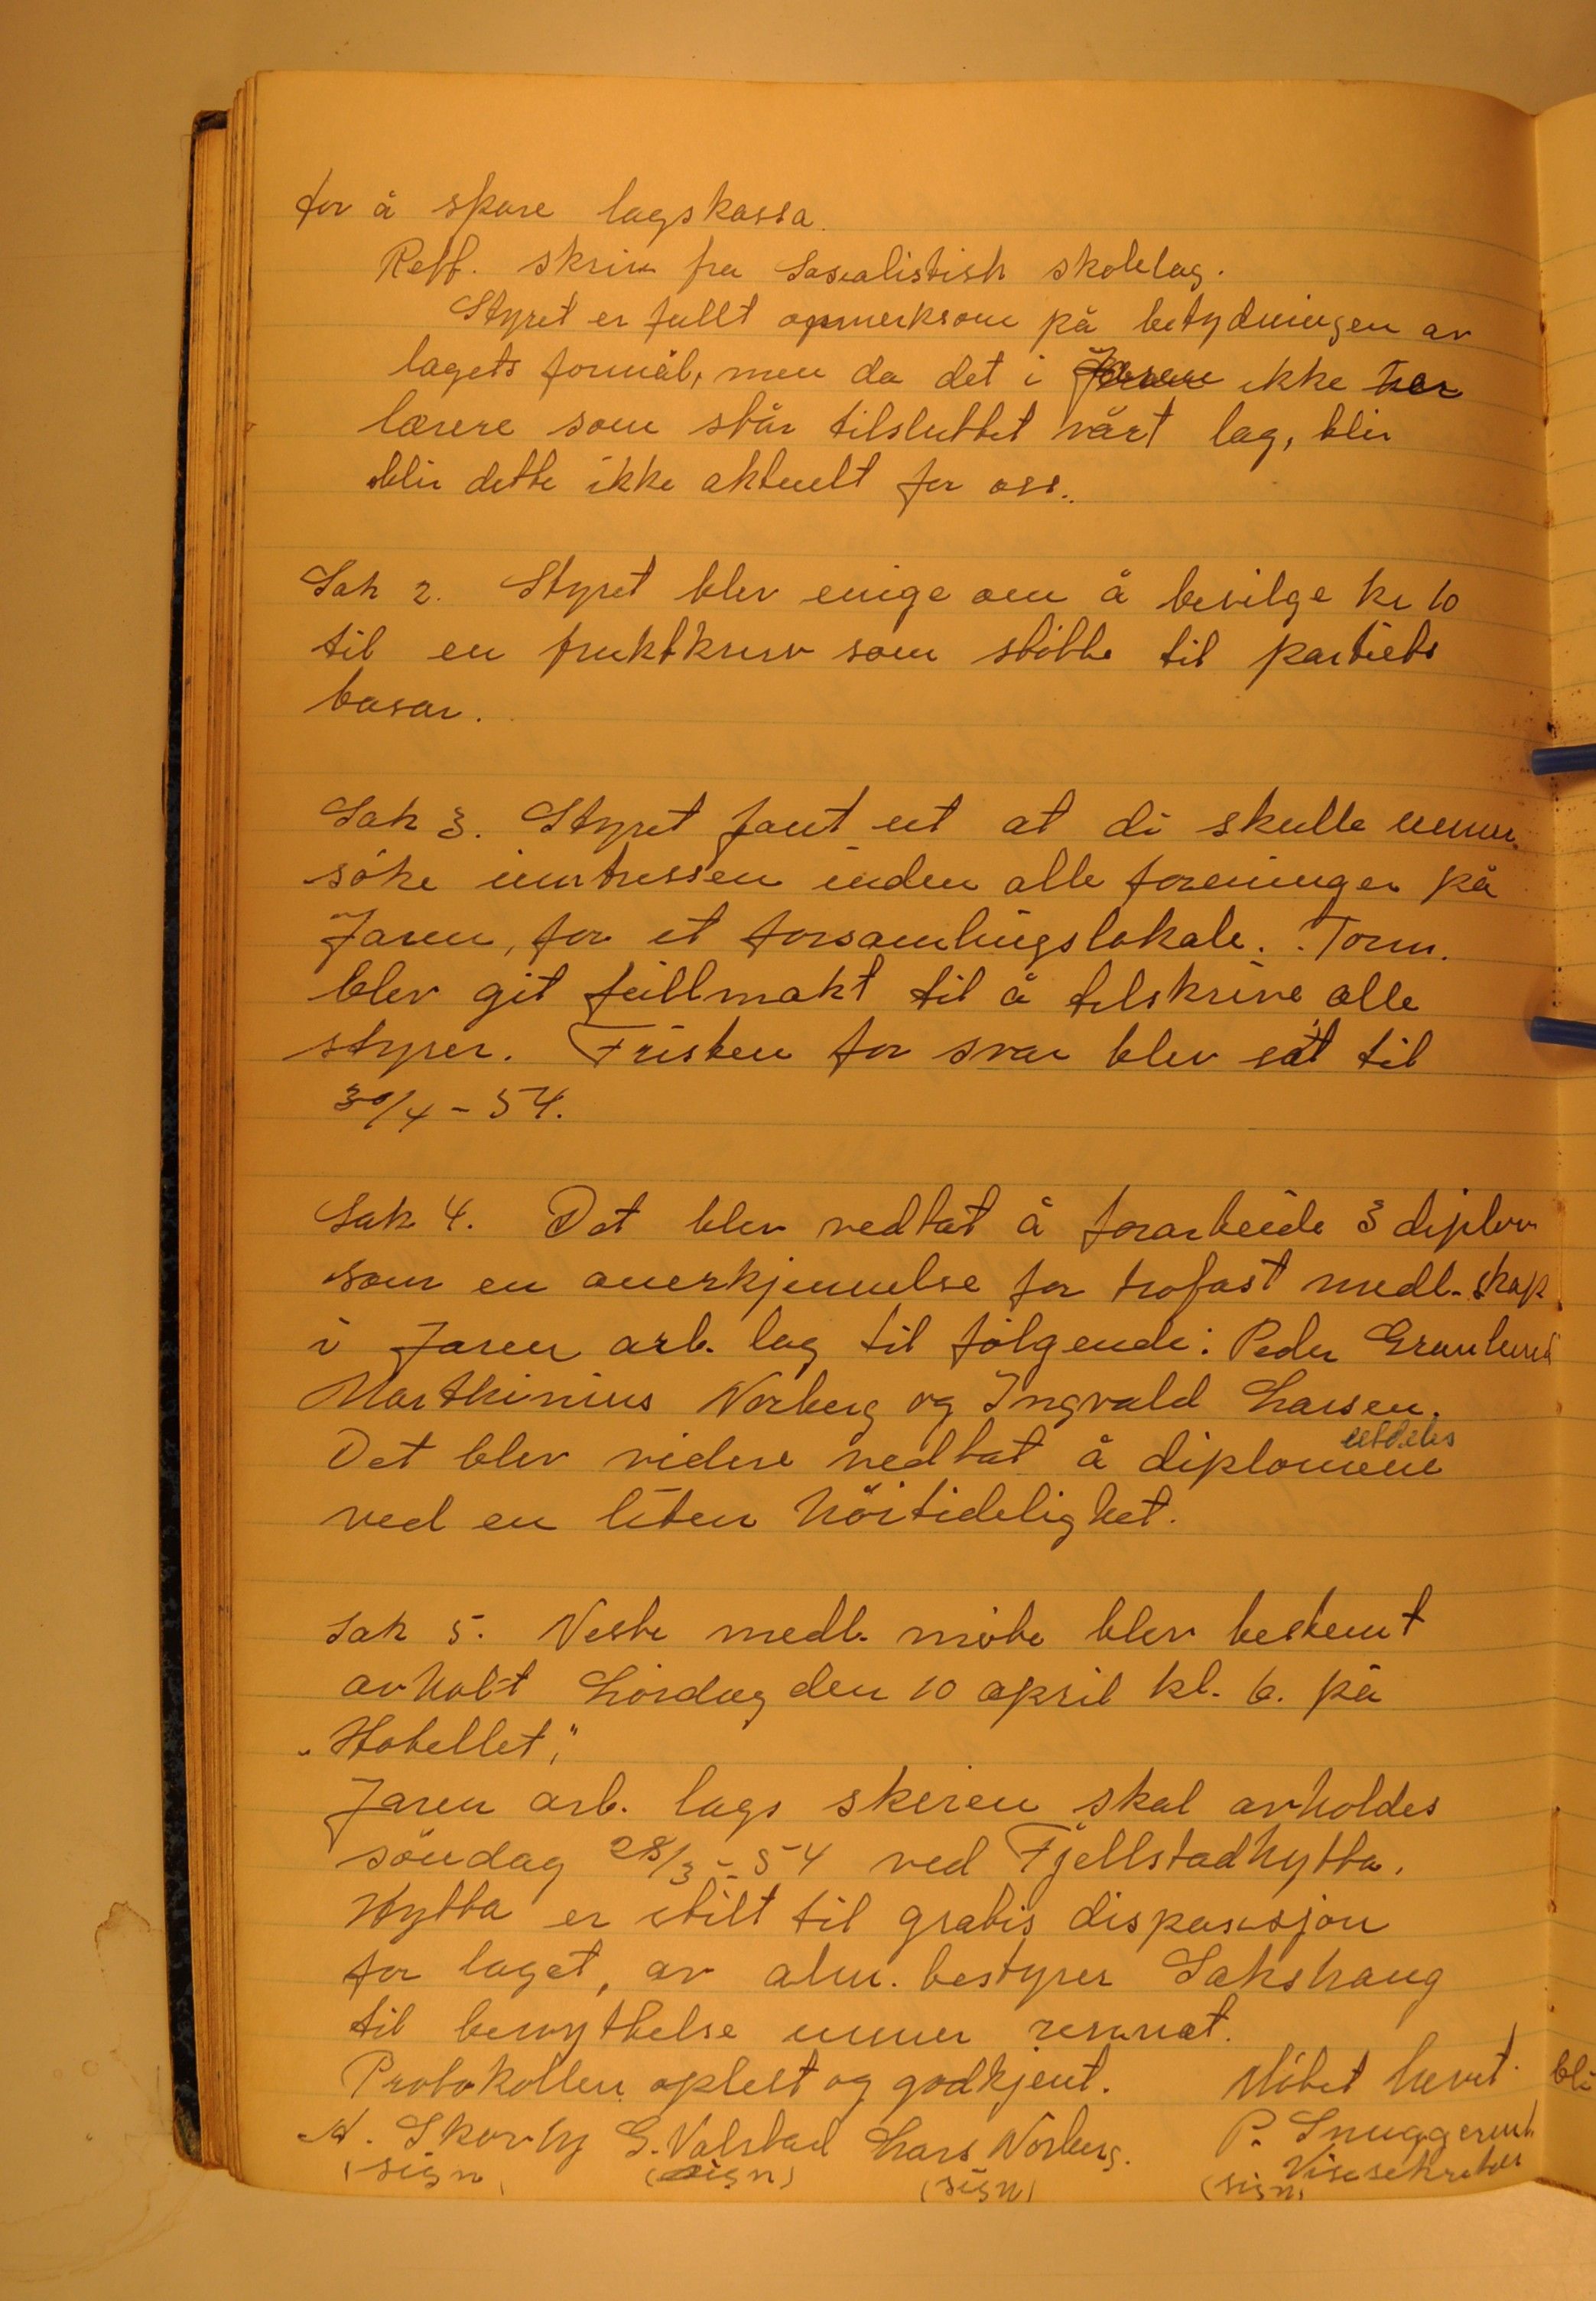 for å spare lagskassa.
Reff. skriv fra Sosialistisk skolelag.
Styret er fullt opmerksom på betydningen av
lagets formål, men da det i Jaren ikke har
lærere som står tilsluttet vårt lag, blir
blir dette ikke aktuelt for oss.
Sak 2. Styret blev enige om å bevilge kr 10
til en fruktkurv som støtte til partiets
basar.
Sak 3. Styret fant ut at di skulle unner-
søke interessen inden alle foreninger på
Jaren, for et forsamlingslokale. Form.
blev git fullmakt til å tilskrive alle
styrer. Fristen for svar blev sat til
30/4 - 54.
Sak 4. Det blev vedtat å forarbeide 3 diplom
som en anerkjennelse for trofast medl.skap
i Jaren arb. lag til følgende: Peder Granlund
Marthinius Norberg og Ingvald Larsen.
utdeles
Det blev videre vedtat å diplomene
ved en liten höitidelighet.
Sak 5. Neste medl. møte blev bestemt
avholt Lördag den 10 april kl. 6. på
"Hotellet"
Jaren arb. lags skirenn skal avholdes
söndag 28/3 - 54 ved Fjellstadhytta.
Hytta er stilt til gratis disposisjon
for laget, av alm. bestyrer Sakshaug
til benyttelse unner rennet.
Protokollen oplest og godkjent. Møtet hevet.
A. Skarby G. Valstad Lars Norberg. P. Snuggerud
Visesekretær
(sign) (sign) (sign) (sign)